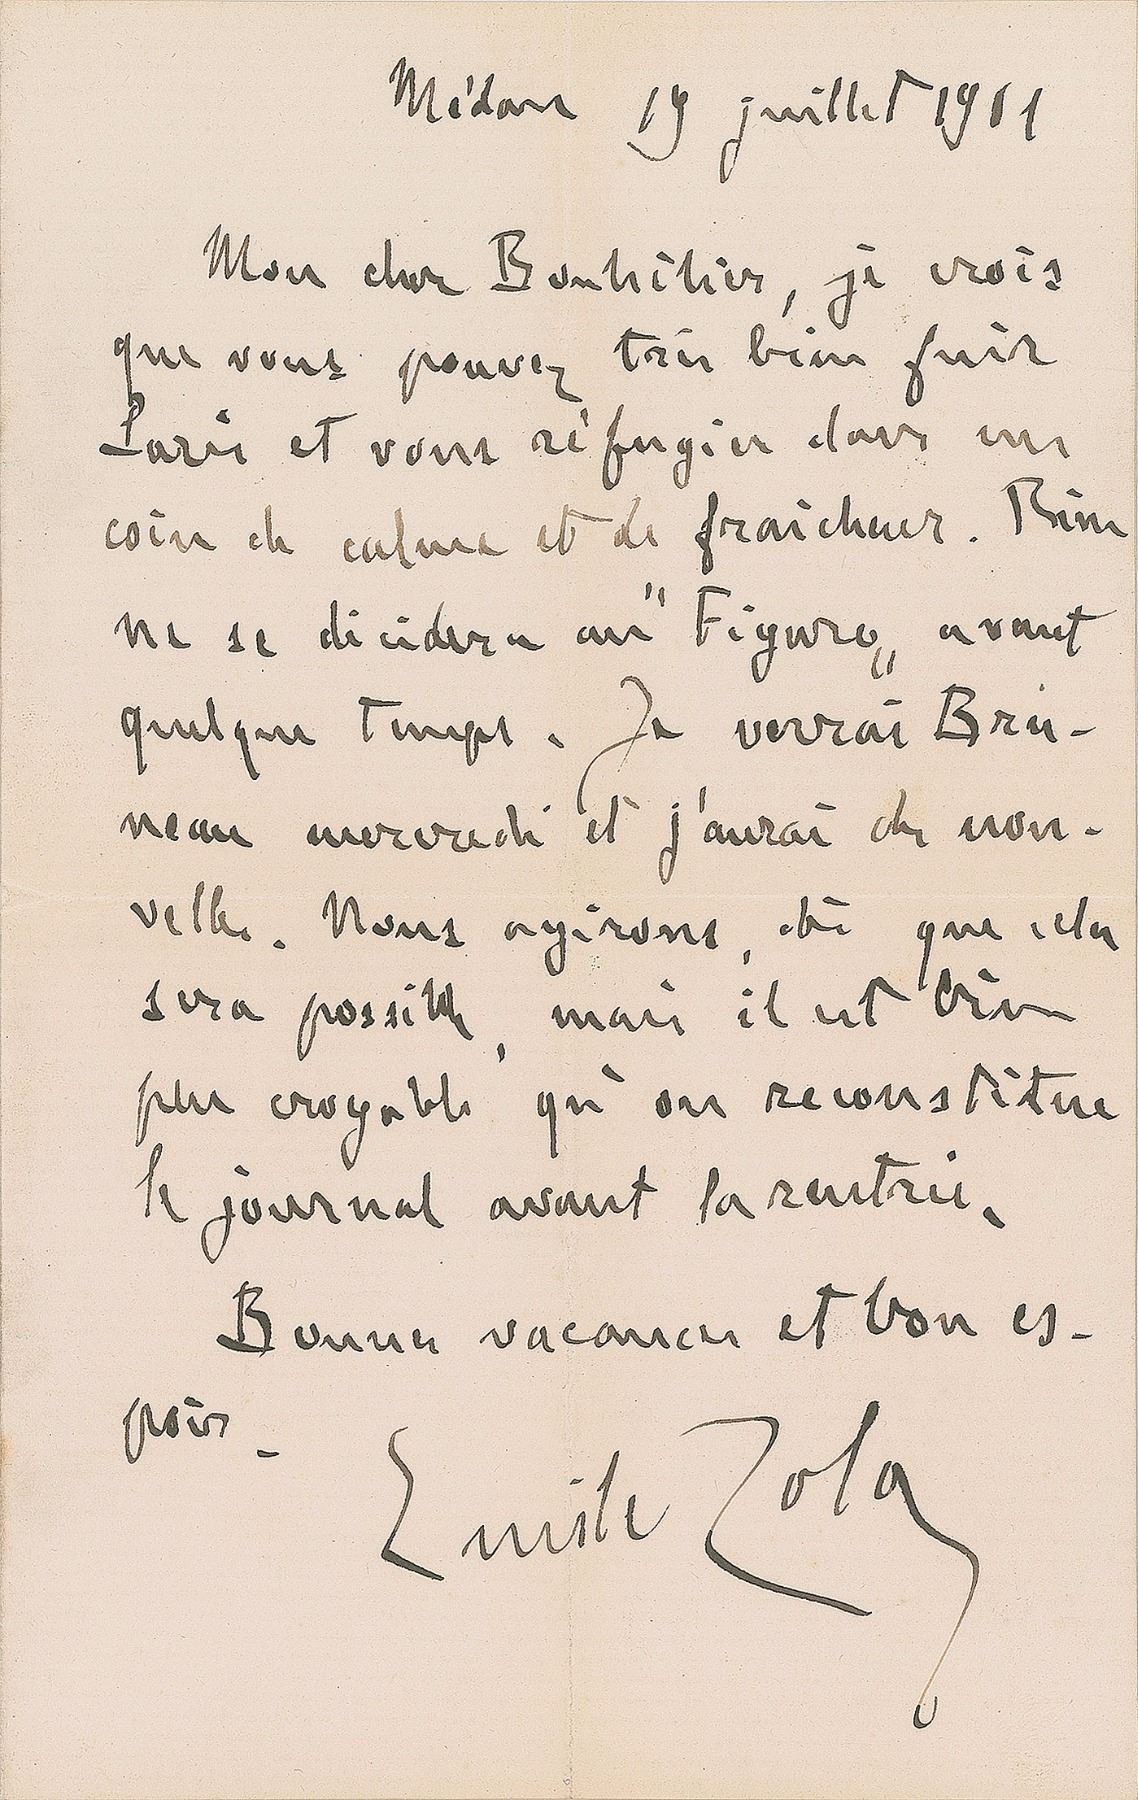 Médan 19 juillet 1901
Mon cher Bouhélier, je crois
que vous pouvez très bien fuir
Paris et vous réfugier dans un
coin de calme et de fraicheur. Rien
ne se décidera au "Figaro„ avant
quelque temps. Je verrai Bru-
neau mercredi et j'aurai des nou-
velles. Nous agirons, dès que cela
sera possible, mais il est bien
peu croyable qu'on reconstitue
le journal avant la rentrée.
Bonnes vacances et bon es-
poir.
Emile Zola